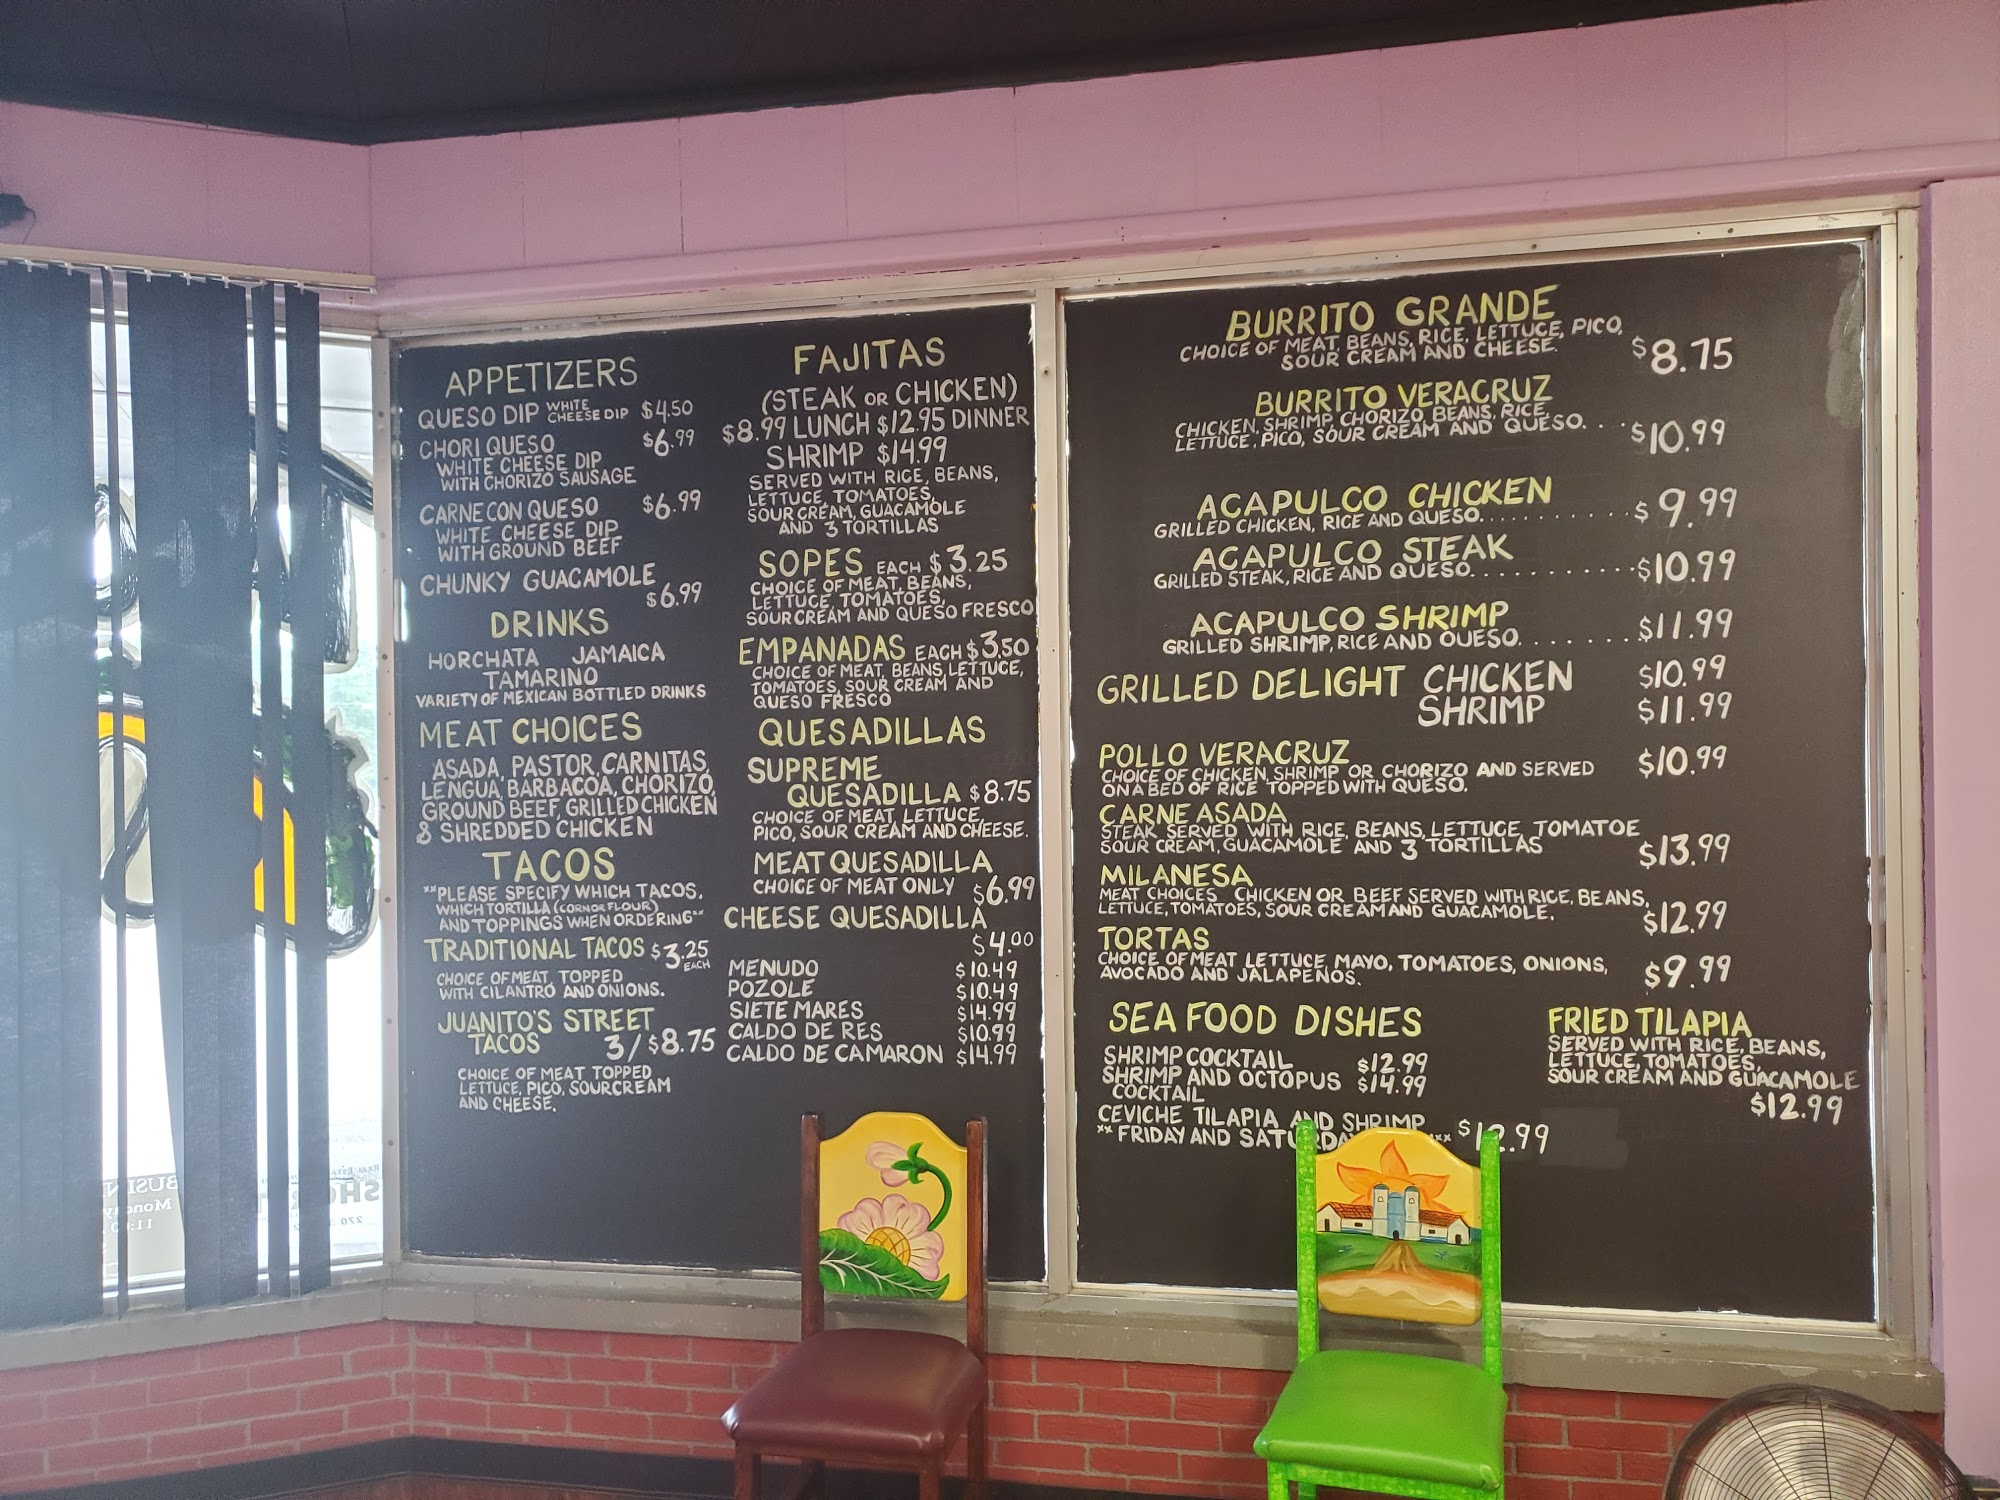 APPETIZERS
QUESO DIP WHITE CHEESE DIP $4.50
CHORI QUESO $6.99
WHITE CHEESE DIP
WITH CHORIZO SAUSAGE
CARNE CON QUESO $6.99
WHITE CHEESE DIP
WITH GROUND BEEF
CHUNKY GUACAMOLE
$6.99
DRINKS
HORCHATA JAMAICA
TAMARINO
VARIETY OF MEXICAN BOTTLED DRINKS
MEAT CHOICES
ASADA, PASTOR, CARNITAS,
LENGUA, BARBACOA, CHORIZO,
GROUND BEEF, GRILLED CHICKEN
& SHREDDED CHICKEN
TACOS
**PLEASE SPECIFY WHICH TACOS,
WHICH TORTILLA (CORN OR FLOUR)
AND TOPPINGS WHEN ORDERING**
TRADITIONAL TACOS $3.25
EACH
CHOICE OF MEAT, TOPPED
WITH CILANTRO AND ONIONS.
JUANITO'S STREET
TACOS 3/$8.75
CHOICE OF MEAT TOPPED
LETTUCE, PICO, SOUR CREAM
AND CHEESE.
FAJITAS
(STEAK OR CHICKEN)
$8.99 LUNCH $12.95 DINNER
SHRIMP $14.99
SERVED WITH RICE, BEANS,
LETTUCE, TOMATOES,
SOUR CREAM, GUACAMOLE
AND 3 TORTILLAS
SOPES EACH $3.25
CHOICE OF MEAT, BEANS,
LETTUCE, TOMATOES,
SOUR CREAM AND QUESO FRESCO
EMPANADAS EACH $3.50
CHOICE OF MEAT, BEANS, LETTUCE,
TOMATOES, SOUR CREAM AND
QUESO FRESCO
QUESADILLAS
SUPREME
QUESADILLA $8.75
CHOICE OF MEAT, LETTUCE,
PICO, SOUR CREAM AND CHEESE.
MEAT QUESADILLA
CHOICE OF MEAT ONLY $6.99
CHEESE QUESADILLA
$4.00
MENUDO $10.49
POZOLE $10.49
SIETE MARES $14.99
CALDO DE RES $10.99
CALDO DE CAMARON $14.99
BURRITO GRANDE
CHOICE OF MEAT, BEANS, RICE, LETTUCE, PICO,
SOUR CREAM AND CHEESE. $8.75
BURRITO VERACRUZ
CHICKEN, SHRIMP, CHORIZO, BEANS, RICE,
LETTUCE, PICO, SOUR CREAM AND QUESO. . . . $10.99
ACAPULCO CHICKEN
GRILLED CHICKEN, RICE AND QUESO. . . . . . . . . . . $9.99
ACAPULCO STEAK
GRILLED STEAK, RICE AND QUESO. . . . . . . . . . . $10.99
ACAPULCO SHRIMP
GRILLED SHRIMP, RICE AND QUESO. . . . . . . $11.99
GRILLED DELIGHT CHICKEN $10.99
SHRIMP $11.99
POLLO VERACRUZ $10.99
CHOICE OF CHICKEN, SHRIMP OR CHORIZO AND SERVED
ON A BED OF RICE TOPPED WITH QUESO.
CARNE ASADA
STEAK SERVED WITH RICE, BEANS, LETTUCE, TOMATOE
SOUR CREAM, GUACAMOLE AND 3 TORTILLAS $13.99
MILANESA
MEAT CHOICES CHICKEN OR BEEF SERVED WITH RICE, BEANS,
LETTUCE, TOMATOES, SOUR CREAM AND GUACAMOLE. $12.99
TORTAS
CHOICE OF MEAT LETTUCE, MAYO, TOMATOES, ONIONS,
AVOCADO AND JALAPEÑOS. $9.99
SEA FOOD DISHES
SHRIMP COCKTAIL $12.99
SHRIMP AND OCTOPUS $14.99
COCKTAIL
CEVICHE TILAPIA AND SHRIMP
**FRIDAY AND
FRIED TILAPIA
SERVED WITH RICE, BEANS,
LETTUCE, TOMATOES,
SOUR CREAM AND GUACAMOLE
$12.99